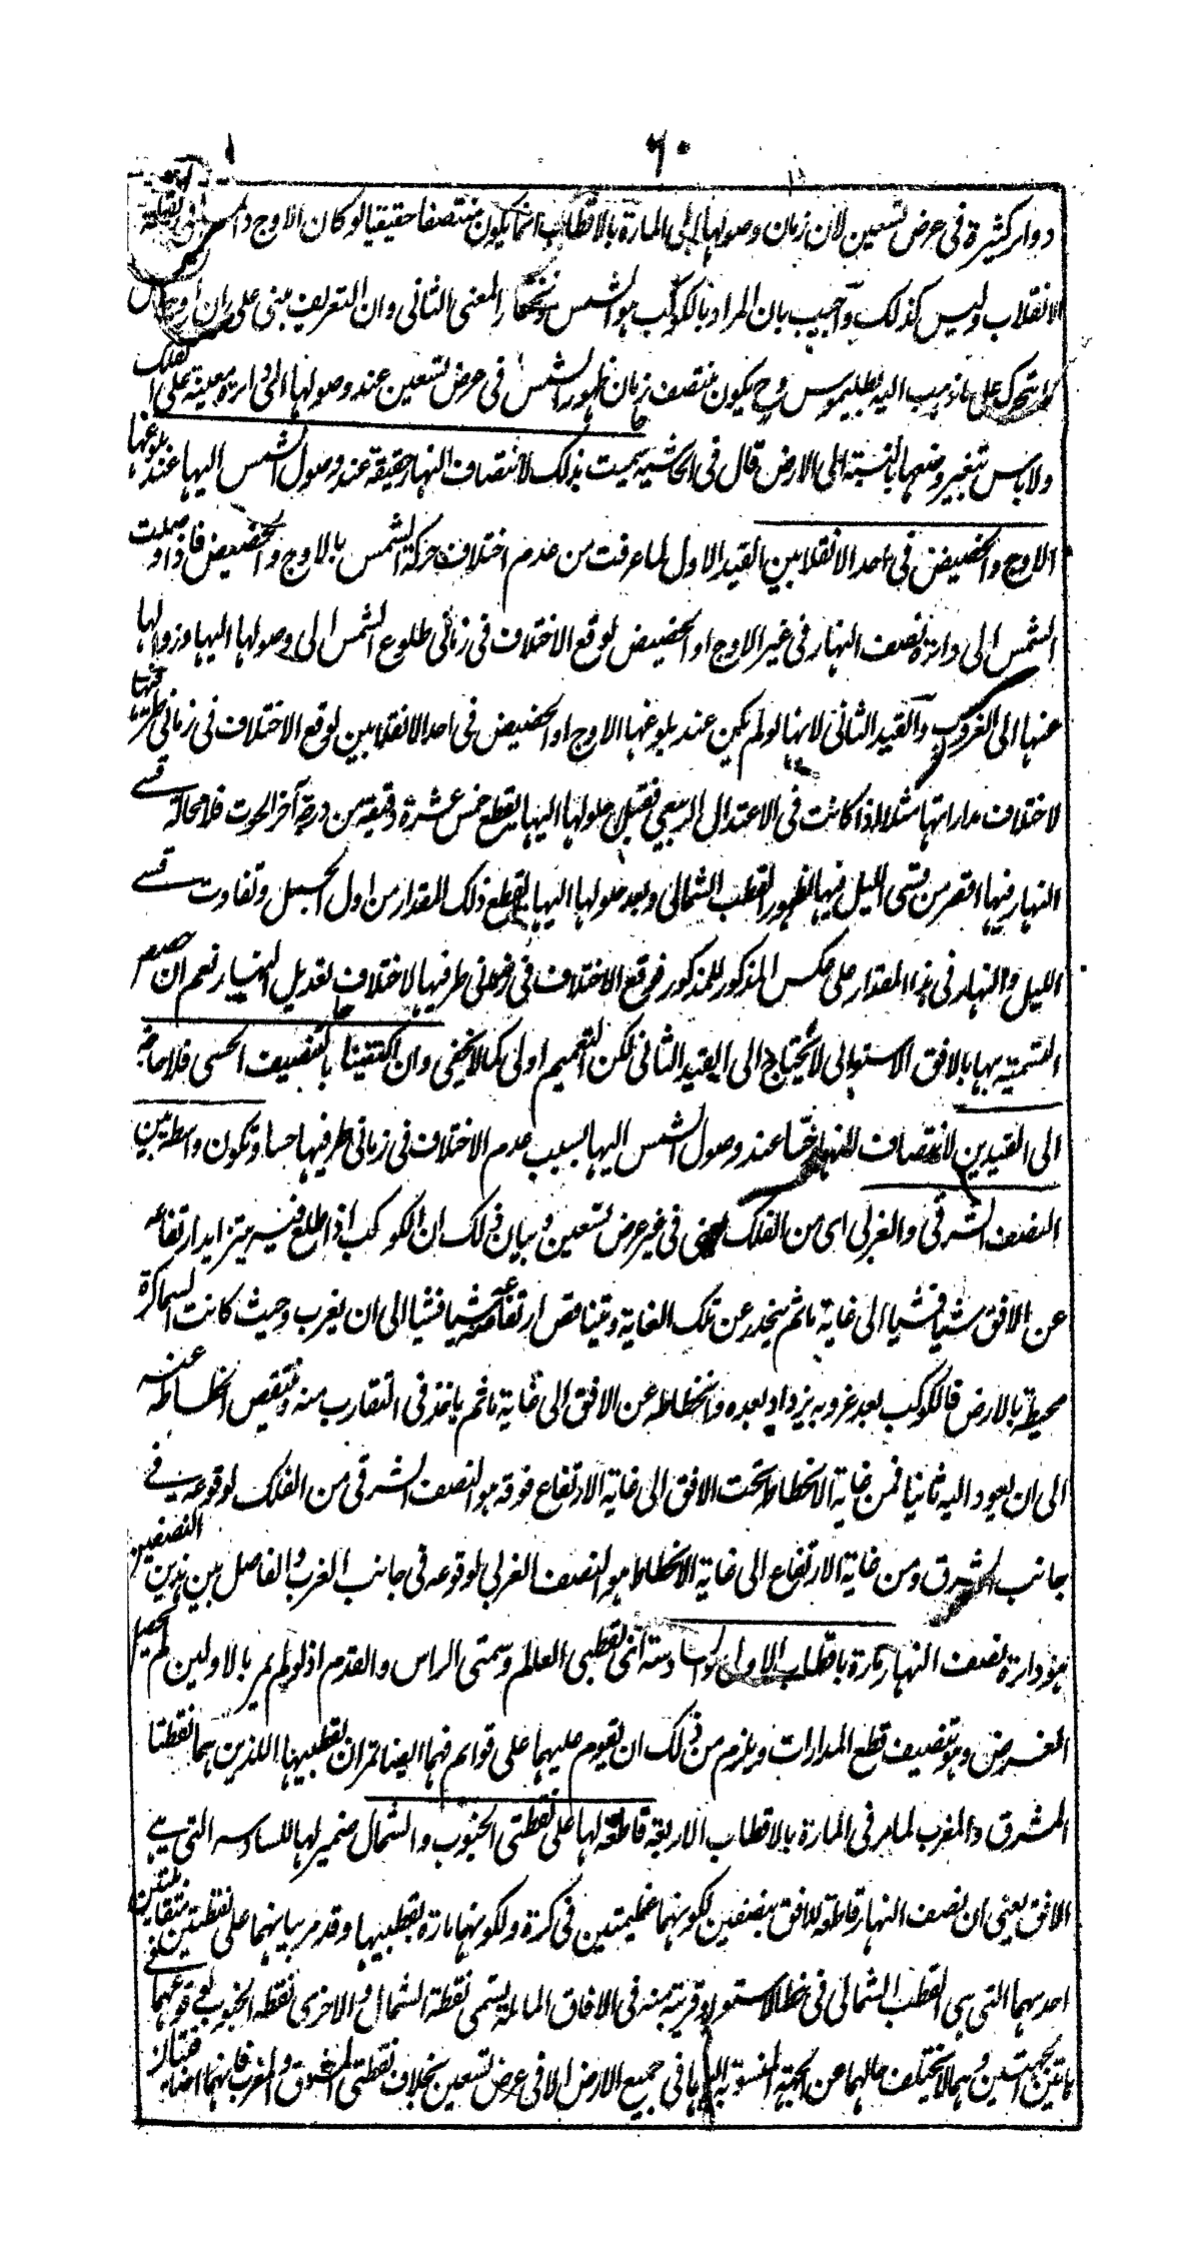 ٦٠
دوائر كثيرة في عرض تسعين لان زمان وصولها الى المارة بالاقطاب انما يكون منتصفا حقيقيا لو كان الاوج في نقطة
الانقلاب وليس كذلك وآجيب بان المراد بالكوكب هو الشمس ونختار المعنى الثاني وان التعريف مبنى على ان اوجها
لا يتحرك على ما ذهب اليه بطليموس وح يكون منتصف زمان ظهور الشمس في عرض تسعين عند وصولها الى دائرة معينة على الفلك
ولا باس بتغير وضعها بالنسبة الى الارض قال في الحاشية سميت بذلك لانتصاف النهار حقيقة عند وصول الشمس اليها عند بلوغها
الاوج والحضيض في احد الانقلابين القيد الاول لما عرفت من عدم اختلاف حركة الشمس بالاوج والحضيض فاذا وصلت
الشمس الى دائرة نصف النهار في غير الاوج او الحضيض لوقع الاختلاف في زمانى طلوع الشمس الى وصولها اليها وزوالها
عنها الى الغروب وآلقيد الثانى لانها لو لم يكن عند بلوغها الاوج او الحضيض في احد الانقلابين لوقع الاختلاف في زمانى طرفيها
لاختلاف مداراتها مثلا اذا كانت في الاعتدال الربيعي فقبل حلولها اليها يقطع خمس عشرة دقيقة من درجة آخر الحوت فلا محالة قسي
النهار فيها اقصر من قسى الليل فيها لظهور القطب الشمالى وبعد حلولها اليها يقطع ذلك المقدار من اول الحمل وتفاوت قسي
الليل والنهار في هذا المقدار على عكس المذكور للمذكور فوقع الاختلاف في زمانى طرفيها لاختلاف تعديل النهار نعم ان خصص
التسمية بها بالافق الاستوائى لا يحتاج الى القيد الثانى لكن التعميم اولى كما لا يخفى وان اكتفينا بالتنصيف الحسى فلا حاجة
الى القيدين لانتصاف النهار حسا عند وصول الشمس اليها بسبب عدم الاختلاف في زمانى طرفيها حسا وتكون واسطة بين
النصف الشرقى والغربى اى من الفلك يعنى في غير عرض تسعين وبيان ذلك ان الكوكب اذا طلع فيتزايد ارتفاعه
عن الافق شيئا فشيئا الى غاية ما ثم ينحدر عن تلك الغاية ويتناقص ارتفاعه شيئا فشيئا الى ان يغرب وحيث كانت السماء كرة
محيطة بالارض فالكوكب بعد غروبه يزداد بعده وانحطاطه عن الافق الى غاية ما ثم ياخذ في التقارب منه وينتقص انحطاطه عنه
الى ان يعود اليه ثانيا فمن غاية الانحطاط تحت الافق الى غاية الارتفاع فوقه هو النصف الشرقى من الفلك لوقوعه في
جانب الشرق ومن غاية الارتفاع الى غاية الانحطاط هو النصف الغربى لوقوعه في جانب الغرب والفاصل بين هذين النصفين
هو دائرة نصف النهار مارة باقطاب الاولى والسادسة اعنى قطبى العالم وسمتى الراس والقدم اذ لو لم يمر بالاولين لم يحصل
الغرض وهو تنصيف قطع المدارات ويلزم من ذلك ان تقوم عليهما على قوائم فهما ايضا تمران بقطبيها اللذين هما نقطتا
المشرق والمغرب لما مر في المارة بالاقطاب الاربعة قاطعة لها على نقطتى الجنوب والشمال ضمير لها للسادسة التى هي
الافق يعنى ان نصف النهار قاطعة للافق بنصفين لكونهما عظيمتين في كرة ولكونها مارة بقطبيها وقد مر بيانهما على نقطتين متقابلتين
احدهما التى هي القطب الشمالى في خط الاستواء وقريبة منه في الافاق المائلة تسمى نقطة الشمال والاخرى نقطة الجنوب لوقوعهما في
هاتين الجهتين وهما لا يختلف حالهما عن الجهة المنسوبة اليها في جميع الارض الا في عرض تسعين بخلاف نقطتى المشرق والمغرب فانهما